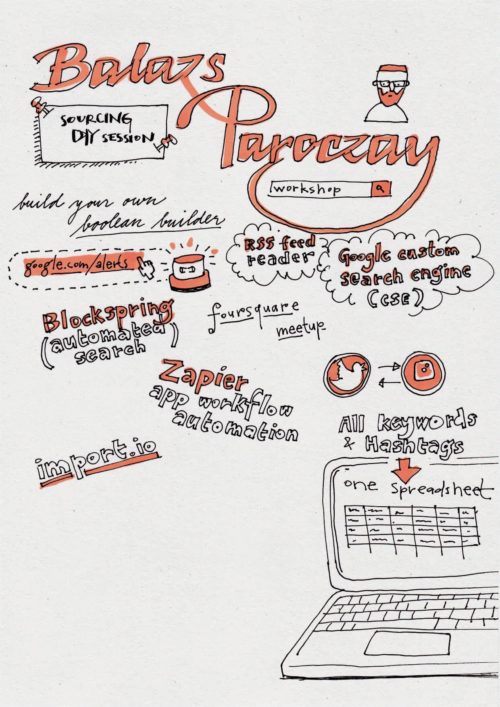 Balazs
SOURCING
DIY SESSION
Paroczay
workshop
build your own
boolean builder
google.com/alerts
RSS feed
reader
Google custom
search engine
(CSE)
Blockspring
(automated
search)
foursquare
meetup
Zapier
app workflow
automation
import.io
All keywords
& Hashtags
one spreadsheet